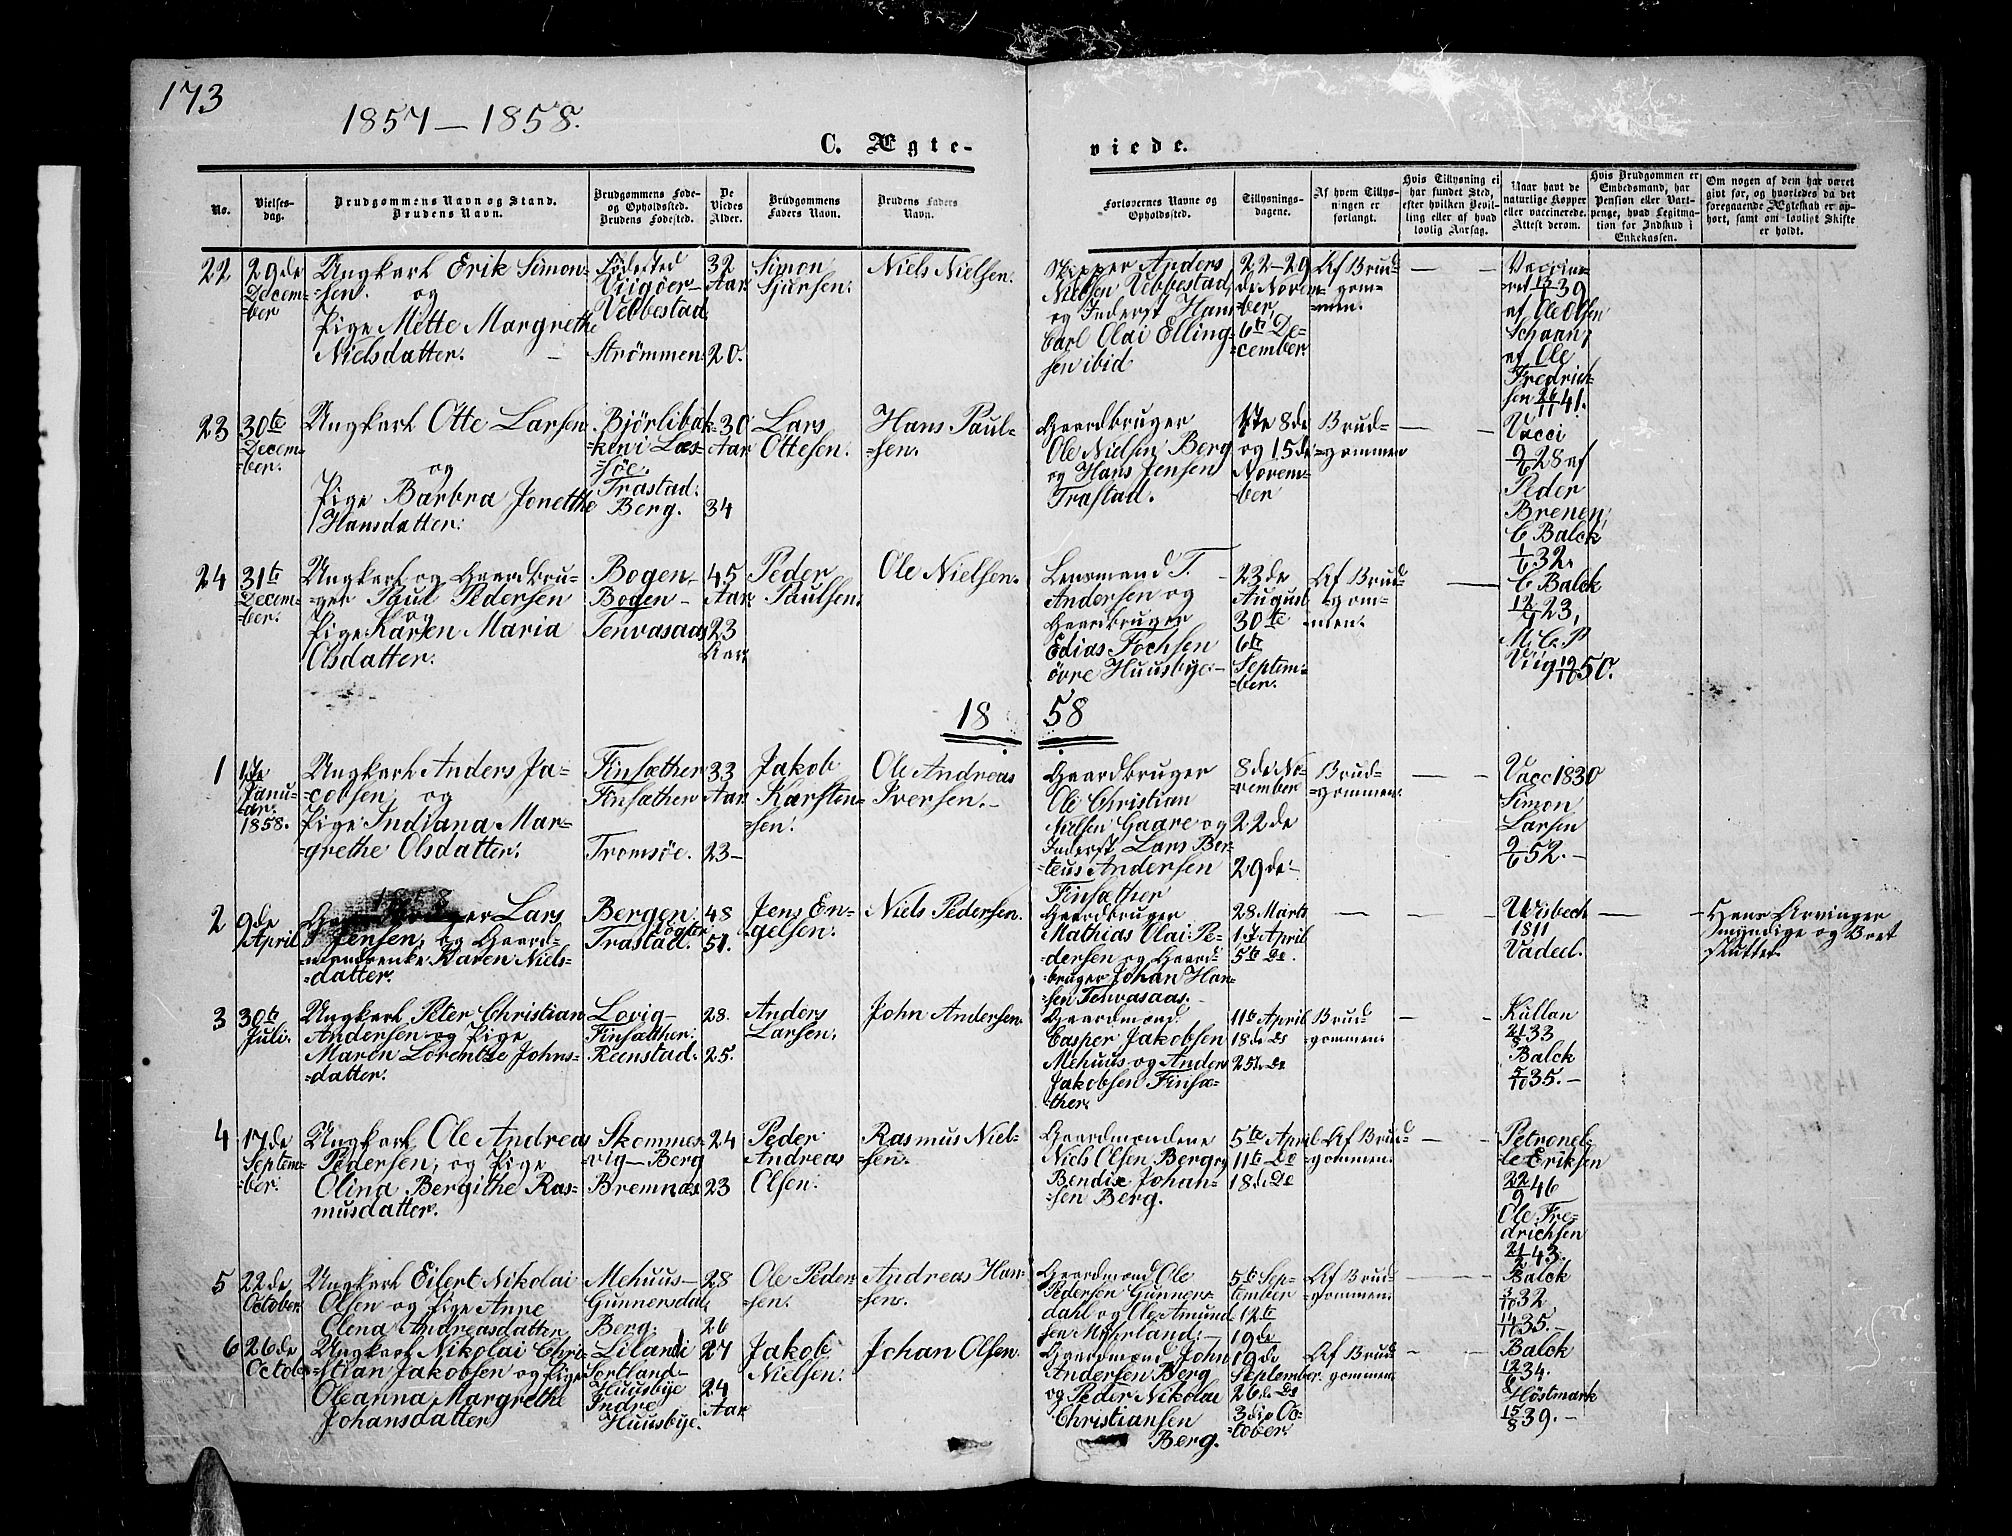 173
1857 — 1858.
C. Ægte-
viede.
No.
Vielses-
dag.
Brudgommens Navn og Stand.
Brudens Navn.
Brudgommens Føde-
og Opholdssted.
Brudens Fødested.
De
Viedes
Alder.
Brudgommens
Faders Navn.
Brudens Faders
Navn.
Forlovernes Navne og
Opholdssted.
Tillysnings-
dagene.
Af hvem Tillys-
ningen er
forlangt.
Hvis Tillysning ei
har fundet Sted,
efter hvilken Bevil-
ling eller af hvad
lovlig Aarsag.
Naar havt de
naturlige Kopper
eller vaccinerede.
Attest derom.
Hvis Brudgommen er
Embedsmand, har
Pension eller Vart-
penge, hvad Legitima-
tion for Indskud i
Enkekassen.
Om nogen af dem har været
givt for, og hvorledes da det
foregaaende Ægteskab er op-
hørt, samt om lovligt Skifte
er holdt.
22
29de
Decem-
=ber
Ungkarl Erik Simon-
=sen. og
Pige Mette Margrethe
Nielsdatter.
Fødested
Vebbestad,
Strømmen
32
Aar
20.
Simon
Sjursen.
Niels Nielsen.
Skipper Anders
Nielsen Vebbestad,
og Inderst Hans
Carl Olai Elling-
sen ibid
22–29
de Novem-
ber,
6te De-
=cember.
Af Brud-
=gom-
=men.
Vaccine-
ret 13/39
af Ole Olsen
Schaan,
af Ole
Fredrich-
sen 26/11 41.
23
30te
Decem-
=ber.
Ungkarl Otte Larsen
og
Pige Barbra Jonette
Hansdatter.
Bjørlibak-
=ken i Les-
=søe.
Trastad.
Berg.
30
Aar
34
Lars
Ottesen.
Hans Paul-
=sen.
Gaardbruger
Ole Nielsen Berg
og Hans Jensen
Trastad.
1ste 8de
og 15de
Novem-
ber
Brud-
=gommen
Vacci
9/6 28 af
Peder
Brenen,
C Balck
1/6 32.
24
31te
Decem-
=ber.
Ungkarl og Gaardbru-
=ger Paul Pedersen
og
Pige Karen Maria
Olsdatter.
Bogen–
Bogen–
Tenvasaas
45
Aar
23
Aar
Peder
Paulsen.
Ole Nielsen.
Lensmand T.
Andersen og
Gaardbruger
Edias Fochsen
øvre Huusbye.–
23de
August
30te
6te
Septem-
=ber.
Af Brud-
=gom-
men.
C Balck
12/7 23,
M. C. P
Viig 19/10 50.
18
58
1
17de
Janu-
=ar.
1858.
Ungkarl Anders Ja-
=cobsen, og
Pige Indiana Mar-
=grethe Olsdatter.
Finsæther
Finsæther
Tromsøe.
33
Aar
23–
Jakob
Karsten-
=sen.
Ole Andreas
Iversen.–
Gaardbruger
Ole Christian
Nielsen Gaare og
Inderst Lars Ber-
=teus Andersen
Finsæther
8de No-
=vember
22de
29de.
Brud-
=gommen.
Vacc 1830
Simon
Larsen
9/6 52.–
2
9de
April
1858
Lars
Jensen, og Gaard-
=mandsenke Karen Niels-
=datter.
Bergen.
Trastad.
48
51.
Jens En-
gelsen.
Niels Pedersen.
Gaardbruger
Mathias Olai Pe-
dersen og Gaard-
=bruger Johan Han-
=sen Tenvasaas.
28. Marts
1st April
5te Do.
Wisbech
1811
Vadeel.
Hans Arvinger
myndige og Boet
sluttet.
3
30te
Juli.
Ungkarl Peter Christian
Andersen og Pige
Maren Lorentze Johns-
=datter.
Lovig–
Finsæther.
Reenstad.
28.
25.
Anders
Larsen.
John Andersen.
Gaardmand
Casper Jakobsen
Mehuus og Anders
Jakobsen Finsæ-
=ther.
11te April
18de Do
25de Do
Brud-
=gommen.
Killan
21/8 33
Balck
5/10 35.–
4
17de
Septem-
=ber.
Ungkarl Ole Andreas
Pedersen, og Pige
Olina Bergithe Ras-
musdatter.
Skommes-
=vig–Berg
Bremnæs
24
23
Peder
Andreas
Olsen.
Rasmus Niel-
=sen.
Gaardmændene
Niels Olsen Berg og
Bendix Johan-
=sen Berg.
5te April
11te Do
18de Do
Af Brud-
gommen.
Petronel-
le Eriksen
22/9 46
Ole Fre-
drichsen
21/2 43.
5
22de
October.
Ungkarl Eilert Nikolai
Olsen og Pige Anne
Olena Andreasdatter
Mehuus–
Gunnersdal,
Berg.
28
26
Ole Peder-
=sen.
Andreas Han-
=sen.
Gaardmand Ole
Pedersen Gunners-
dahl og Ole Amund-
sen Myhrland.
5te Sep-
tember
12te
19de
Af Brud-
gommen.
Balck
3/10 32,
14/10 35.–
6
26de
October
Ungkarl Nikolai Chri-
=stian Jakobsen og Pige
Oleanna Margrethe
Johansdatter
Liland i
Sortland–
Huusbye
Indre
Huusbye.
27
24
Aar
Jakob
Nielsen.
Johan Olsen.
Gaardmand John
Andersen Berg
og Peder Nikolai
Christiansen
Berg.
19de
September
26de Do
3die Oc-
=tober.
Af Brud-
gommen
Balck
12/6 34.
Høstmark
15/8 39.–